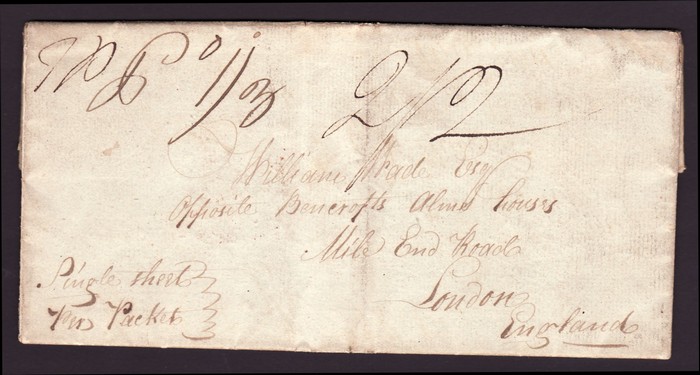 1/3 2/2
William Wade Esq
Opposite Bencrofts Alms houses
Mile End Road
London
England
Single sheet
Per Packet